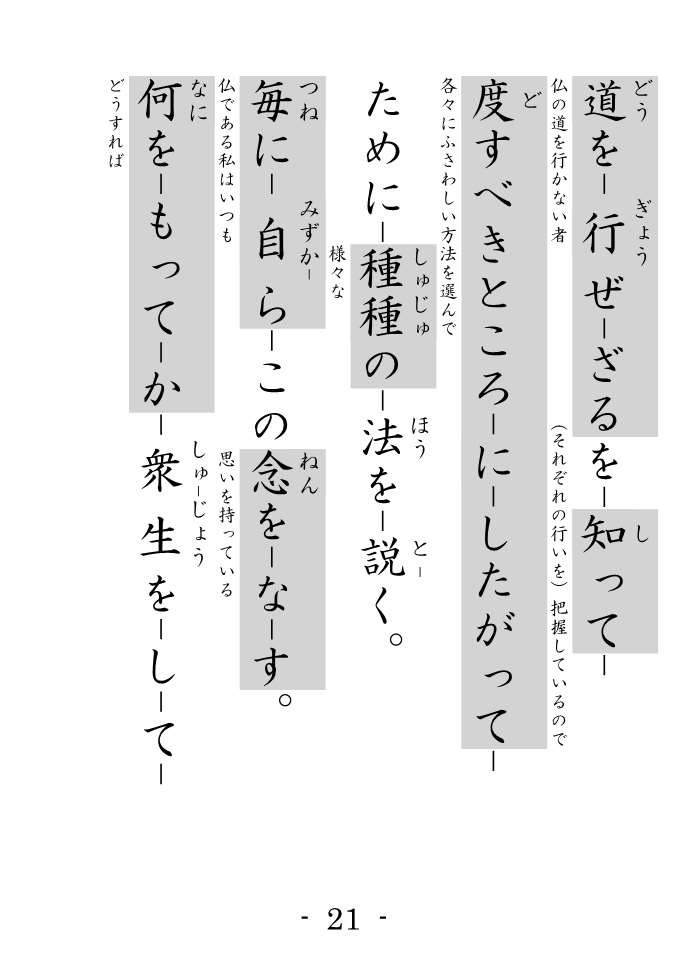 どう ぎょう し
道を｜行ぜ｜ざるを｜知って｜
仏の道を行かない者 (それぞれの行いを) 把握しているので
ど
度すべきところ｜に｜したがって｜
各々にふさわしい方法を選んで
しゅじゅ ほう と｜
ために｜種種の｜法を｜説く。
様々な
つね みずか｜ ねん
毎に｜自ら｜この念を｜な｜す。
仏である私はいつも 思いを持っている
なに しゅ｜じょう
何を｜もって｜か｜衆生を｜し｜て｜
どうすれば
- 21 -